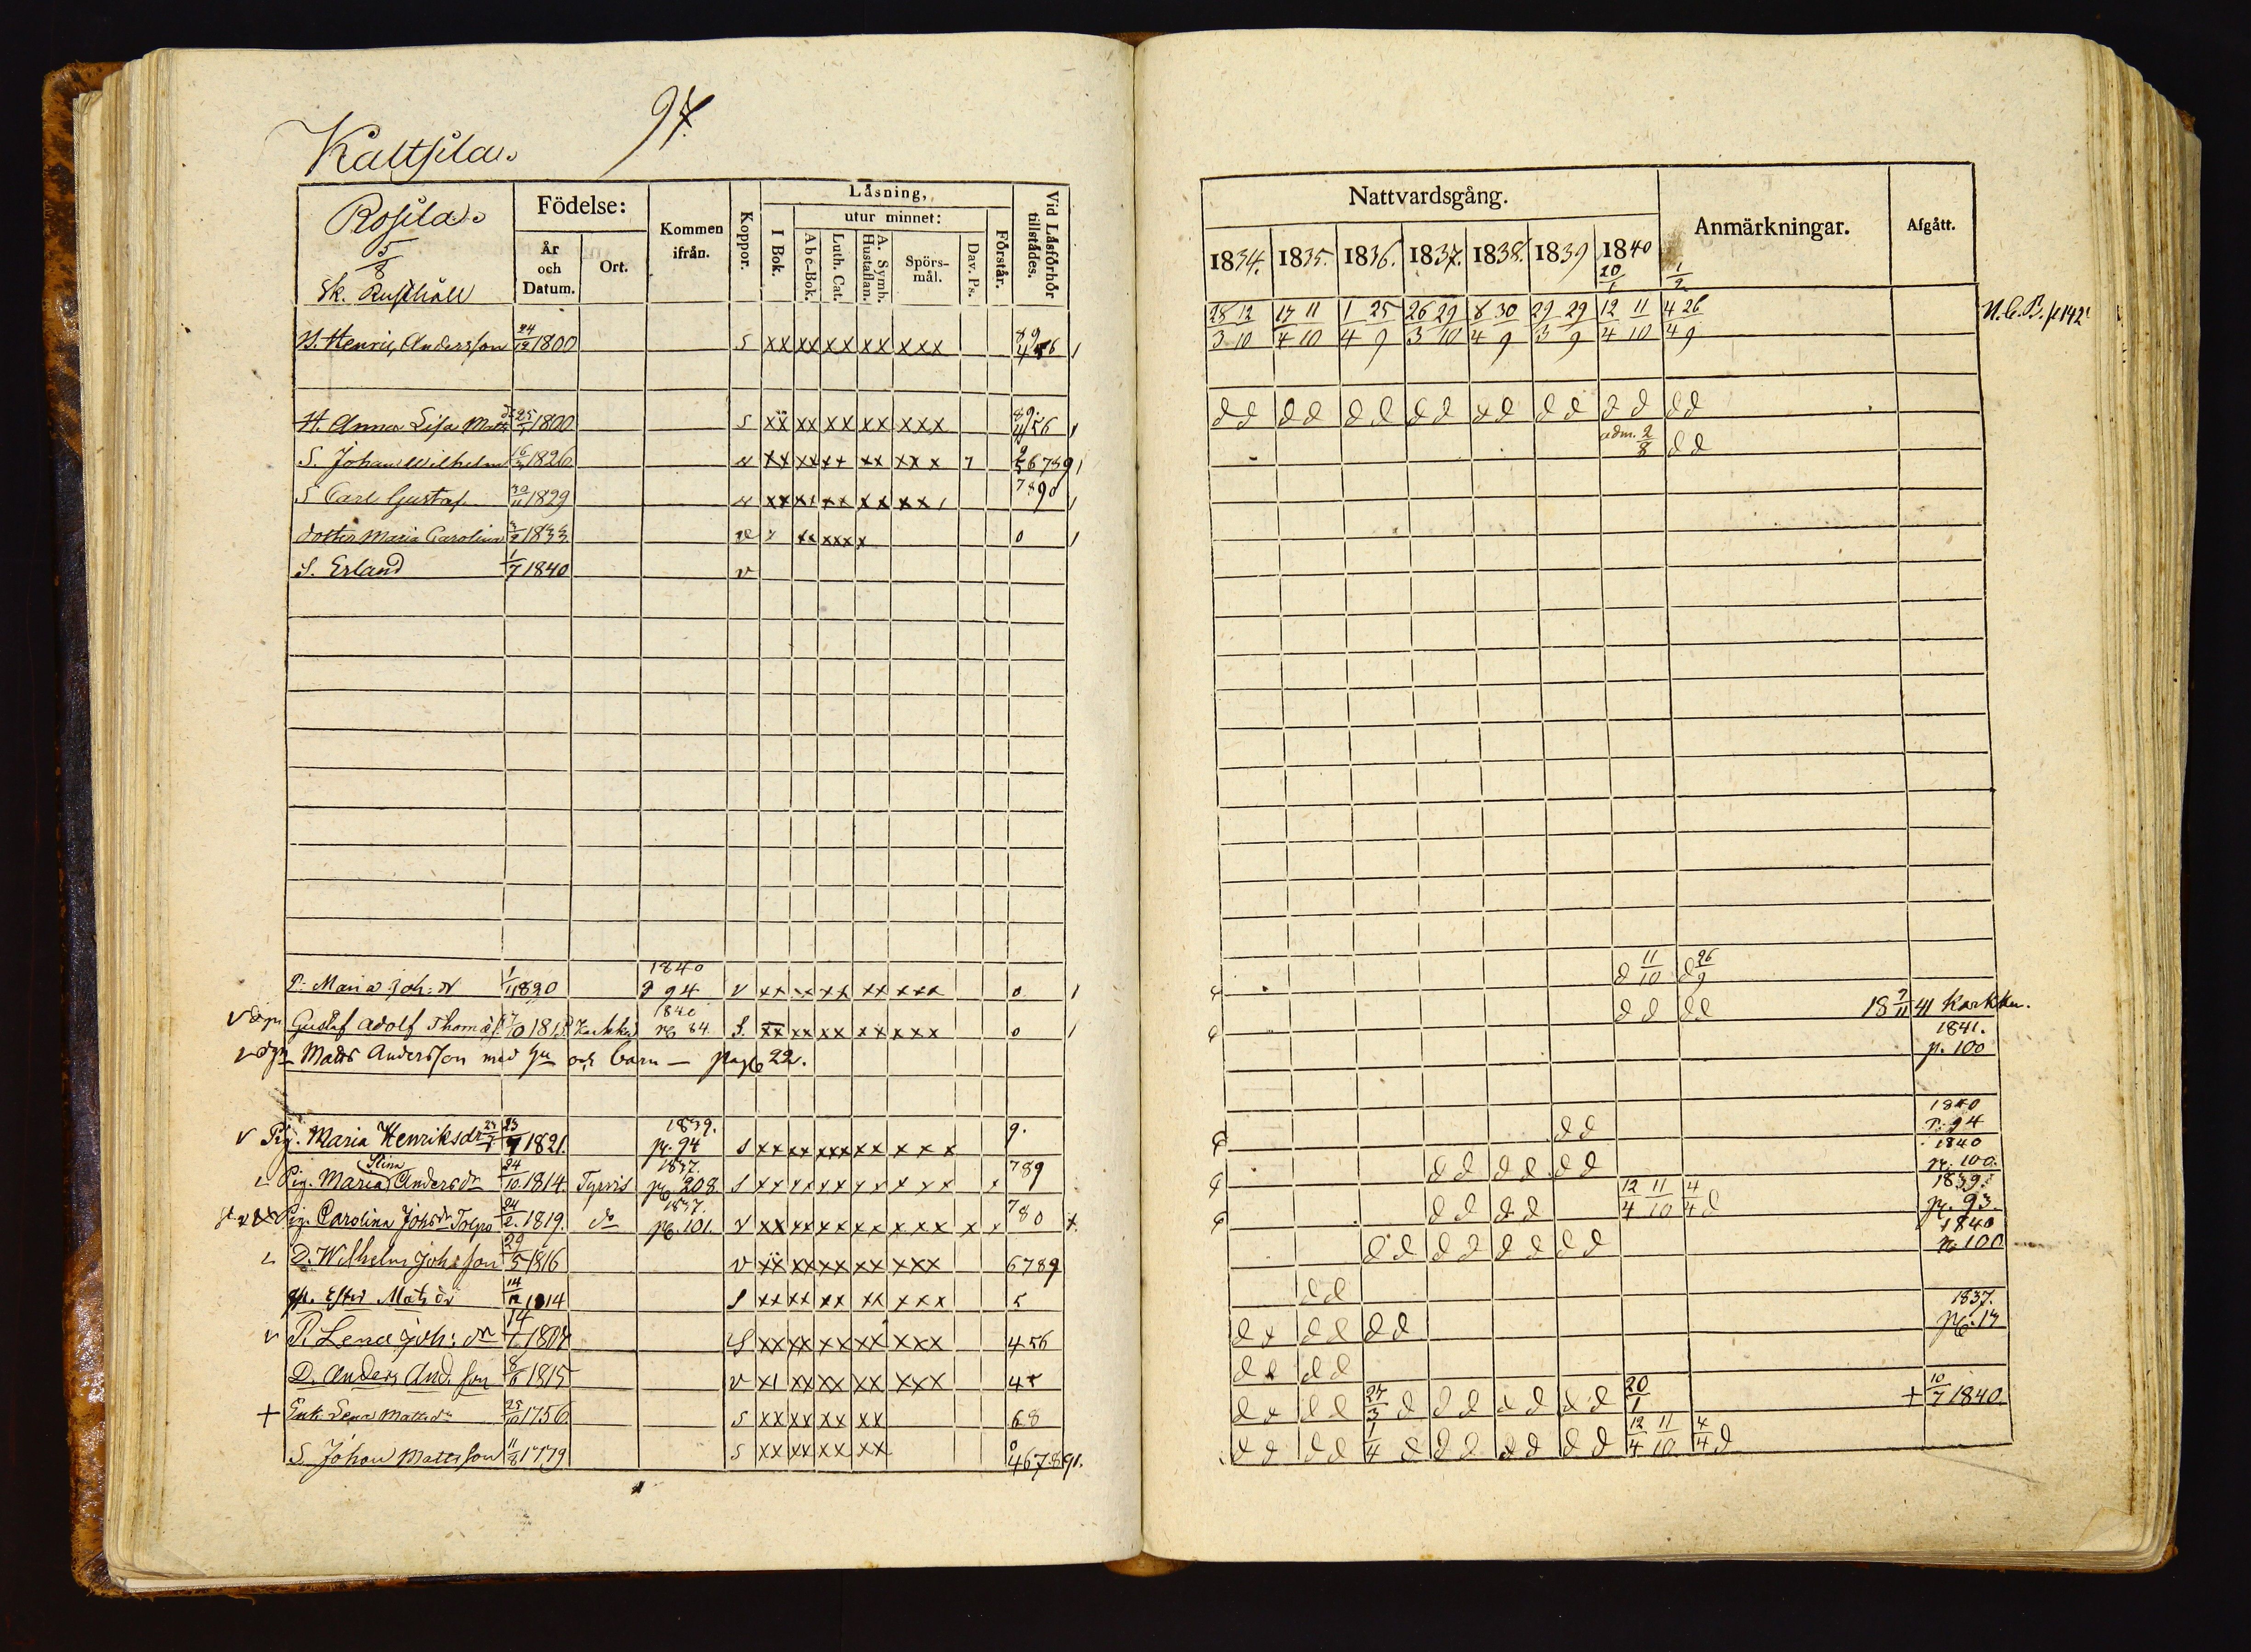 97.
Kaltsila.
Rosila.
5/8
Sk. Rusthåll
Födelse:
År och Datum.
Ort.
Kommen ifrån.
Koppor.
Låsning,
utur minnet:
I Bok.
Abc-Bok.
Luth. Cat.
A. Symb. Hustaflan.
Spörs-mål.
Dav. Ps.
Förstår.
Vid Låsförhör tillstådes.
Henric Andersson 24/12 1800 S xx xx xx xx xxx 89 456 1
H. Anna Lisa Matts dr 25/ 1800 S xx xx xx xx xxx 89 456
S. Johan Wilhelm 1826 xx xx xx xx xx x 7 56789 1
S Carl Gustaf 30/11 1829 xx xx xx xx xx 7890 1
dotter Maria Carolina 1833 xx xxx x 0 1
S. Erland 1/7 1840 v
P. Maria Joh: dr 1/11 1820 1840 p 94 v xx xx xx xx xxx 0 1
Gustaf Adolf Thomas 181 Karkku 1840 pg 84. S. xx xx xx xx xxx 0 1
Matts Andersson med hu och barn — pag 22.
v Pig. Maria Henriksdr 23/7 1821. 1839. pg. 94 S xx xx xxx xx x x x 9.
Pig. Maria Stina Andersdr 24/10 1814. Tyrvis 1837. pg 208. S xx xx xx xx x xx x 789
Pig. Carolina Johsdr Tolpo 24/2 1819. do 1837. pg. 101. v xx xx xx xx xxx x x 780 x
D. Wilhelm Johsson 29/5 1816 v xx xx xx xx xxx 6789
Ester Mats dr 14/12 1814 S xx xx xx xx xxx 5
v P. Lena Joh: dr 14/1 1807 S xx xx xx xx xxx 456
D. Anders And. son 8/6 1815 v x1 xx xx xx xxx 45
+ Enk. Lena Mattsdr 25/10 1756 S xx xx xx xx 68
S. Johan Mattsson 11/8 1779 S xx xx xx xx 0 467891.
Nattvardsgång.
Anmärkningar.
Afgått.
1834. 1835. 1836. 1837. 1838. 1839 1840
20/1 1/2
28/3 12/10 17/4 11/10 1/4 25/9 26/3 29/10 8/4 30/9 29/3 29/9 12/4 11/10 4/4 26/9 N.C.B. p 142
d d d d d d d d x d d d d d d d
adm. 2/8 d d
d 11/10 d 26/9
d d d d 18 7/11 41 Karkku.
1841. p. 100
d d 1840 P. 94
d d d d d d 1840 pg. 100.
d d d d 12/4 11/10 4/4 d 1839. pg. 93.
d d d d d d d d 1840 p. 100
d d
d x d d d d 1837. pg. 13
d x d d
d x d d 27/3 d d d x d x d 20/1 + 10/7 1840.
d d d d 1/4 d d d d d d d 12/4 11/10 4/4 d